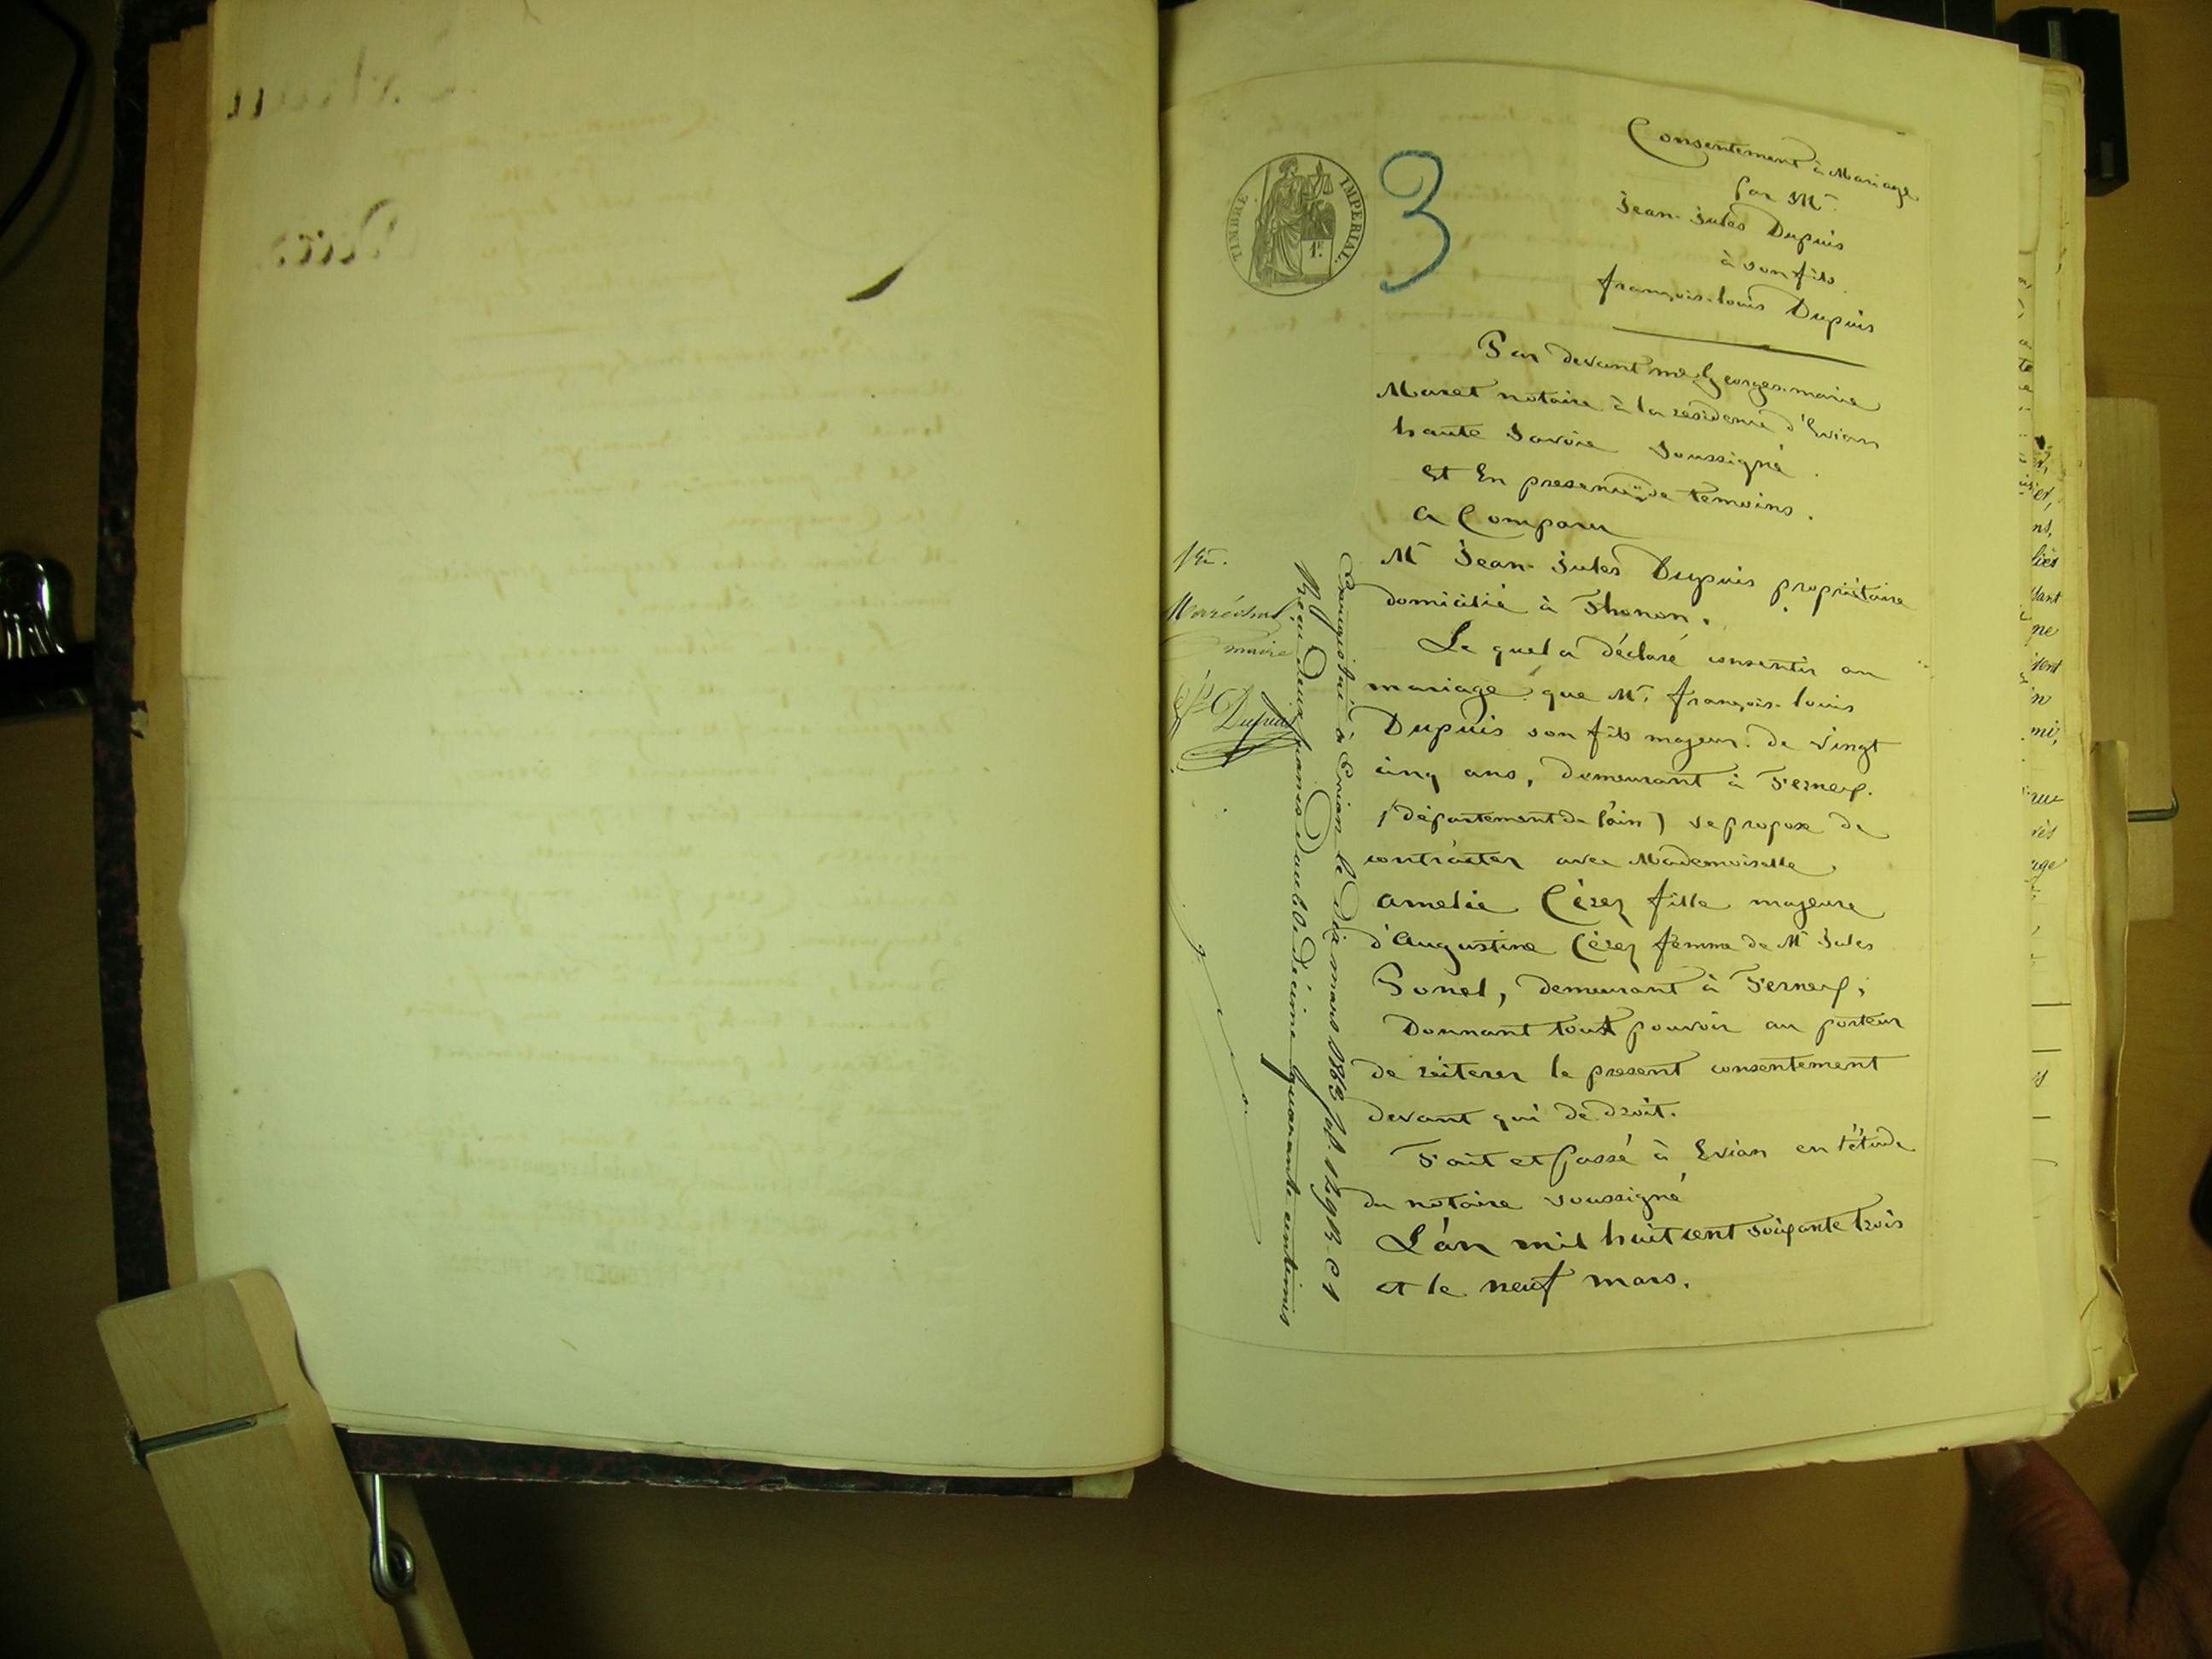 TIMBRE IMPERIAL.
1F
3
Consentement à Mariage
par Mr
Jean-Jules Dupuis
à son fils
françois-louis Dupuis
Par devant me Georges-marie
Maret notaire à la résidence d'Evian
haute Savoie soussigné
Et En presence de temoins.
a Comparu
Mr Jean-Jules Dupuis propriétaire
domicilié à Thonon.
Le quel a déclaré consentir au
mariage que Mr. françois-louis
Dupuis son fils majeur de vingt
cinq ans, demeurant à Ferney.
(département de l'ain) se propose de
contracter avec Mademoiselle
amelie Cérez fille majeure
d'Augustine Cérez femme de Mr Jules
Ponel, demeurant à Ferney;
Donnant tout pouvoir au porteur
de réiterer le present consentement
devant qui de droit.
Fait et passé à Evian en l'étude
du notaire soussigné
L'an mil huit cent soixante trois
et le neuf mars.
Maréchal
maire
Dupuis
Enregistré à Evian le dix mars 1863 fol. 129 R. C 1
Reçu deux francs double décime quarante centimes